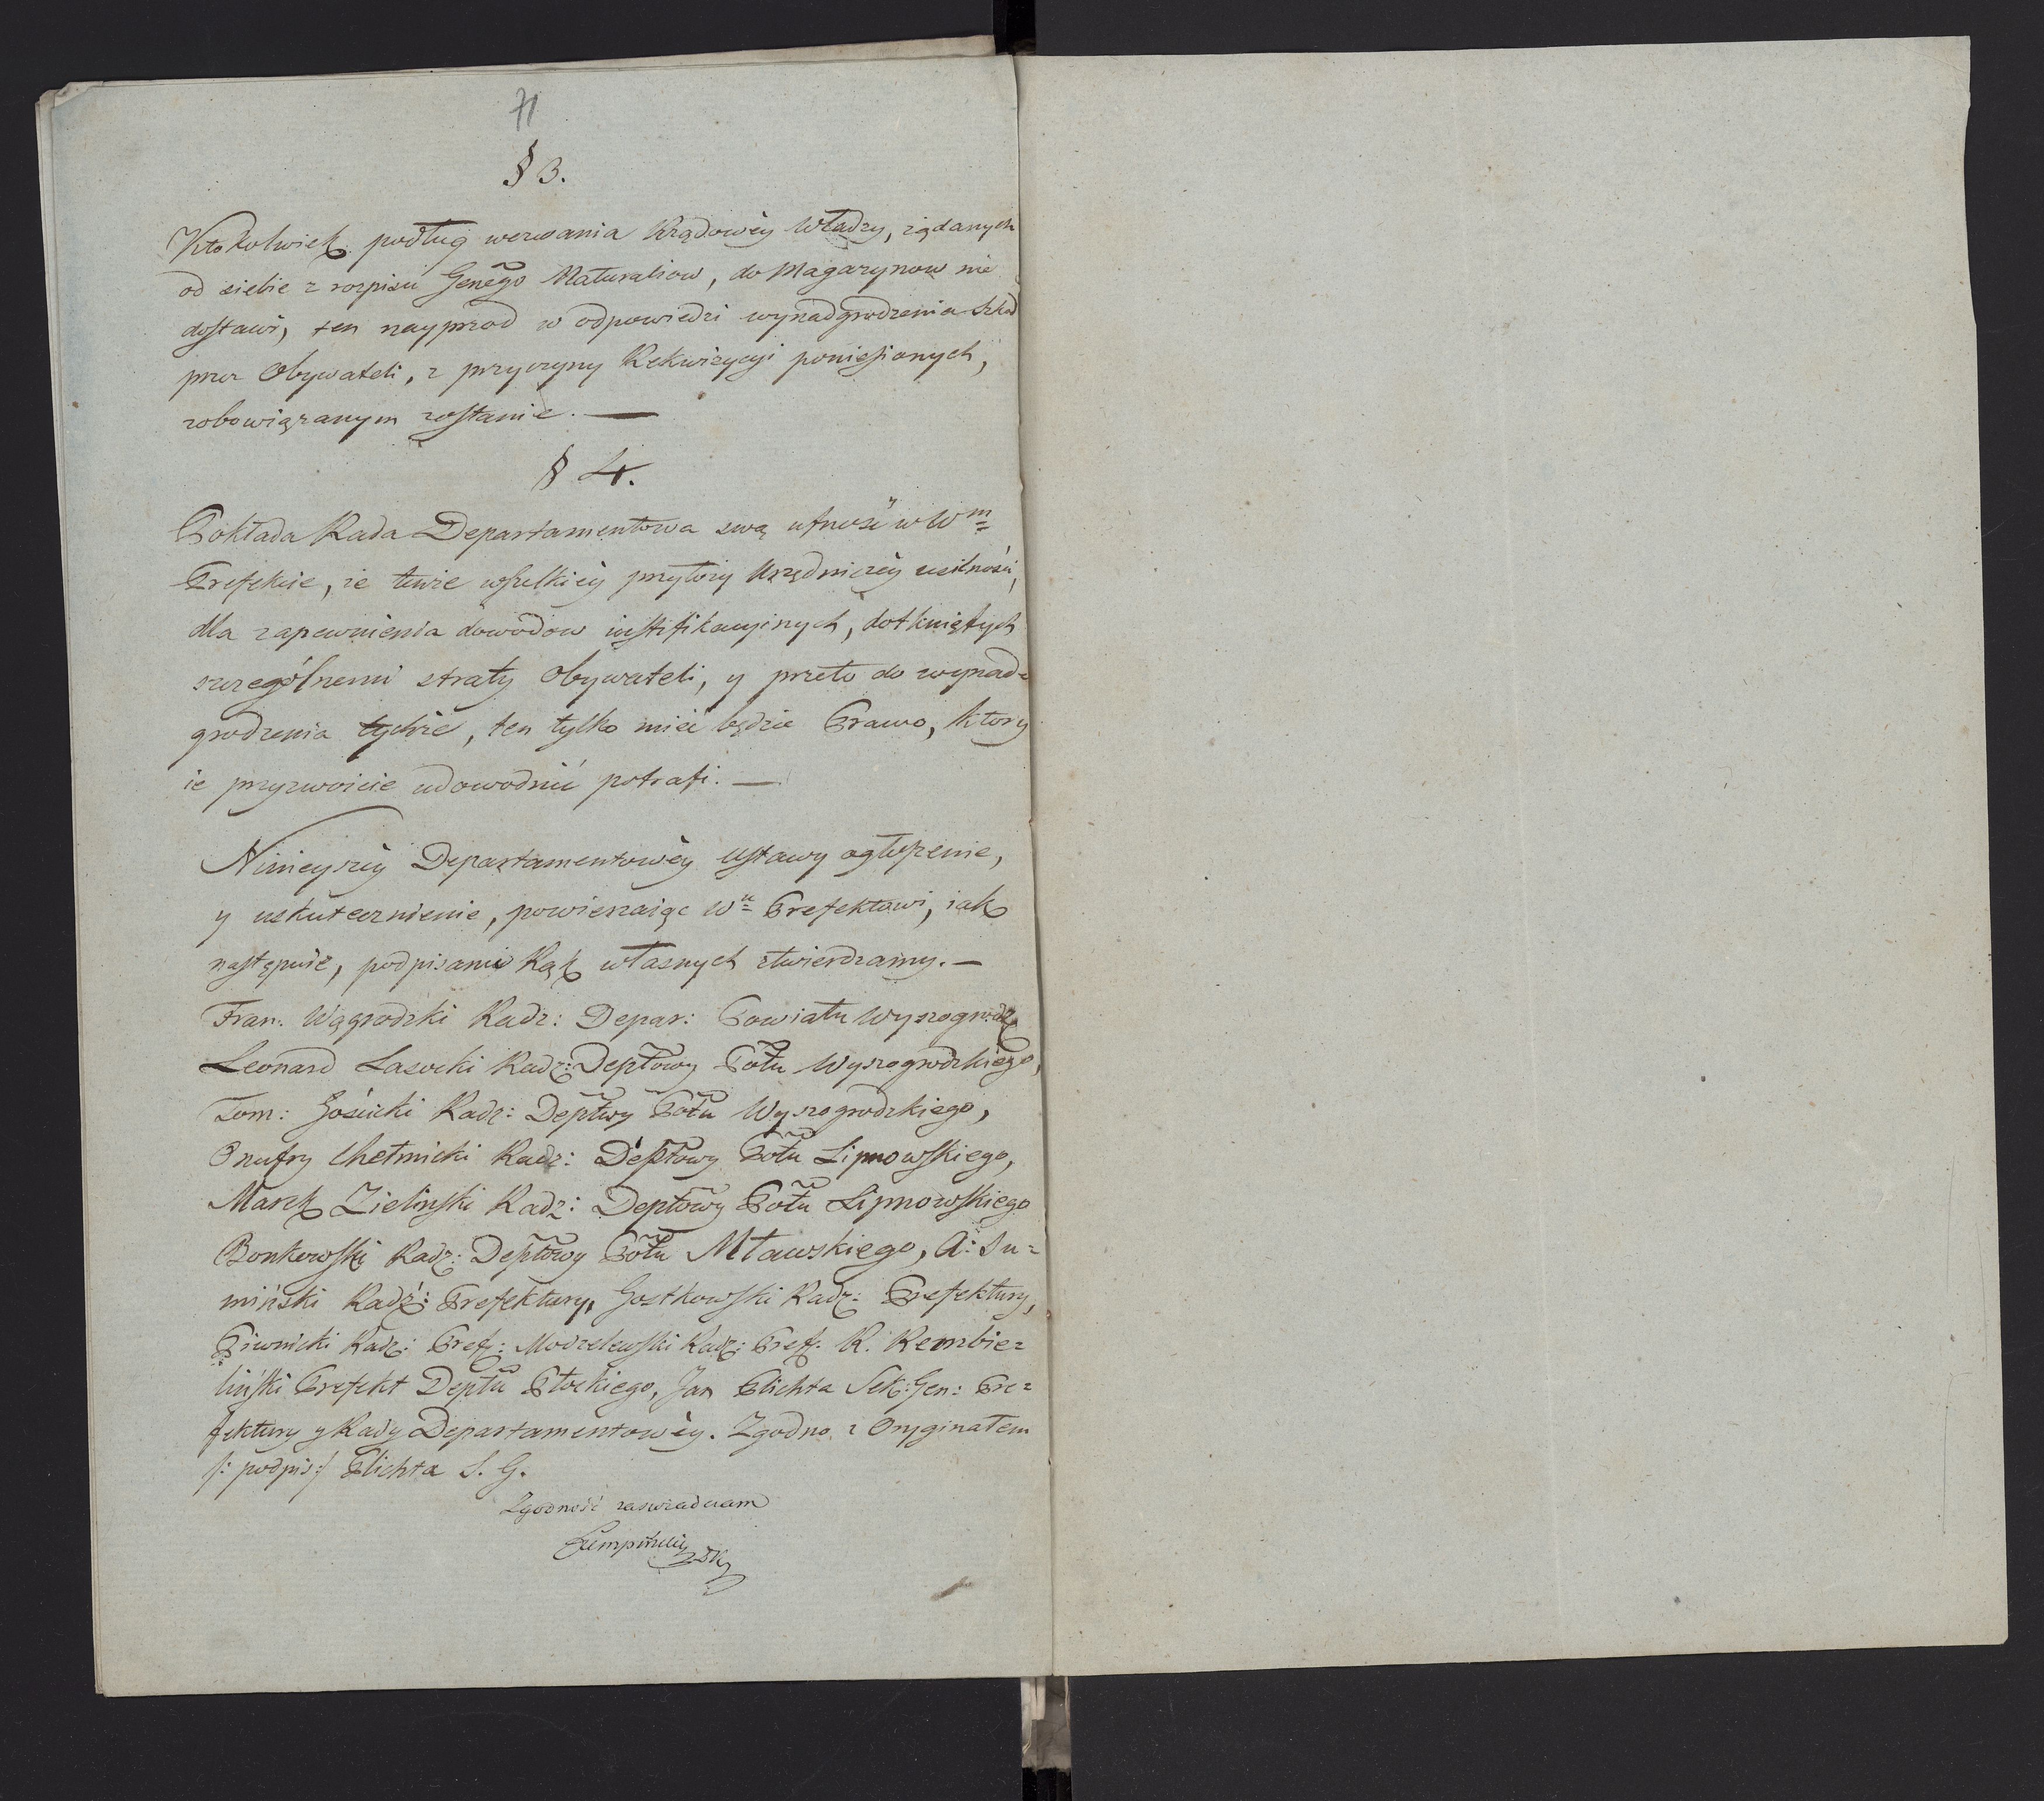 71
§ 3.
Ktokolwiek podług wezwania Rządowéy Władzy, żądanych
od siebie z rozpisu Genego Naturaliow, do Magazynow nie
dostawi, ten nayprzod w odpowiedzi wynadgrodzenia Szkod
przez Obywateli, z przyczyny Rekwizycyi poniesionych,
zobowiązanym zostanie. —
§ 4.
Pokłada Rada Departamentowa swą ufność w Wm
Prefekcie, że tenże wszelkiey przyłoży Urzędniczey usilności,
dla zapewnienia dowodow iustifikacyinych, dotkniętych
szczególnemi straty Obywateli, y przeto do wynad=
grodzenia tychże, ten tylko mieć będzie Prawo, ktory
ie przyzwoicie udowodnić potrafi. —
Ninieyszéy Departamentowéy Ustawy ogłoszenie,
y uskutecznienie, powierzaiąc Wu Prefektowi, iak
następuie, podpisami Rąk własnych stwierdzamy. —
Fran: Wągrodzki Radz: Depar: Powiatu Wyszogrodz
Leonard Lasocki Radz: Deptowy Pottu Wyszogrodzkiego,
Tom: Gościcki Radz: Deptwy Pottu Wyszogrodzkiego,
Onufry Chełmicki Radz: Deptowy Pottu Lipnowskiego,
Marek Zielinski Radz: Deptowy Pottu Lipnowskiego
Bonkowski Radz: Deptowy Pottu Mławskiego, A: Su=
miński Radź: Prefektury, Gostkowski Radz: Prefektury,
Piwnicki Radz: Pref: Modzelewski Radz: Pref. R. Rembie=
liński Prefekt Deptu Płockiego, Jan Plichta Sek: Gen: Pre=
fektury y Rady Departamentowéy. Zgodno z Oryginałem
/: podpis:/ Plichta S. G.
Zgodność zaswiadczam